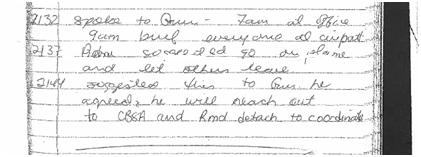 2132 spoke to Gun - 7am at office
9am brief everyone at airport
2137 Adam so needed go on plane
and let others leave
2144 suggested this to Gun he
agreed, he will reach out
to CBSA and Rmd detach to coordinate